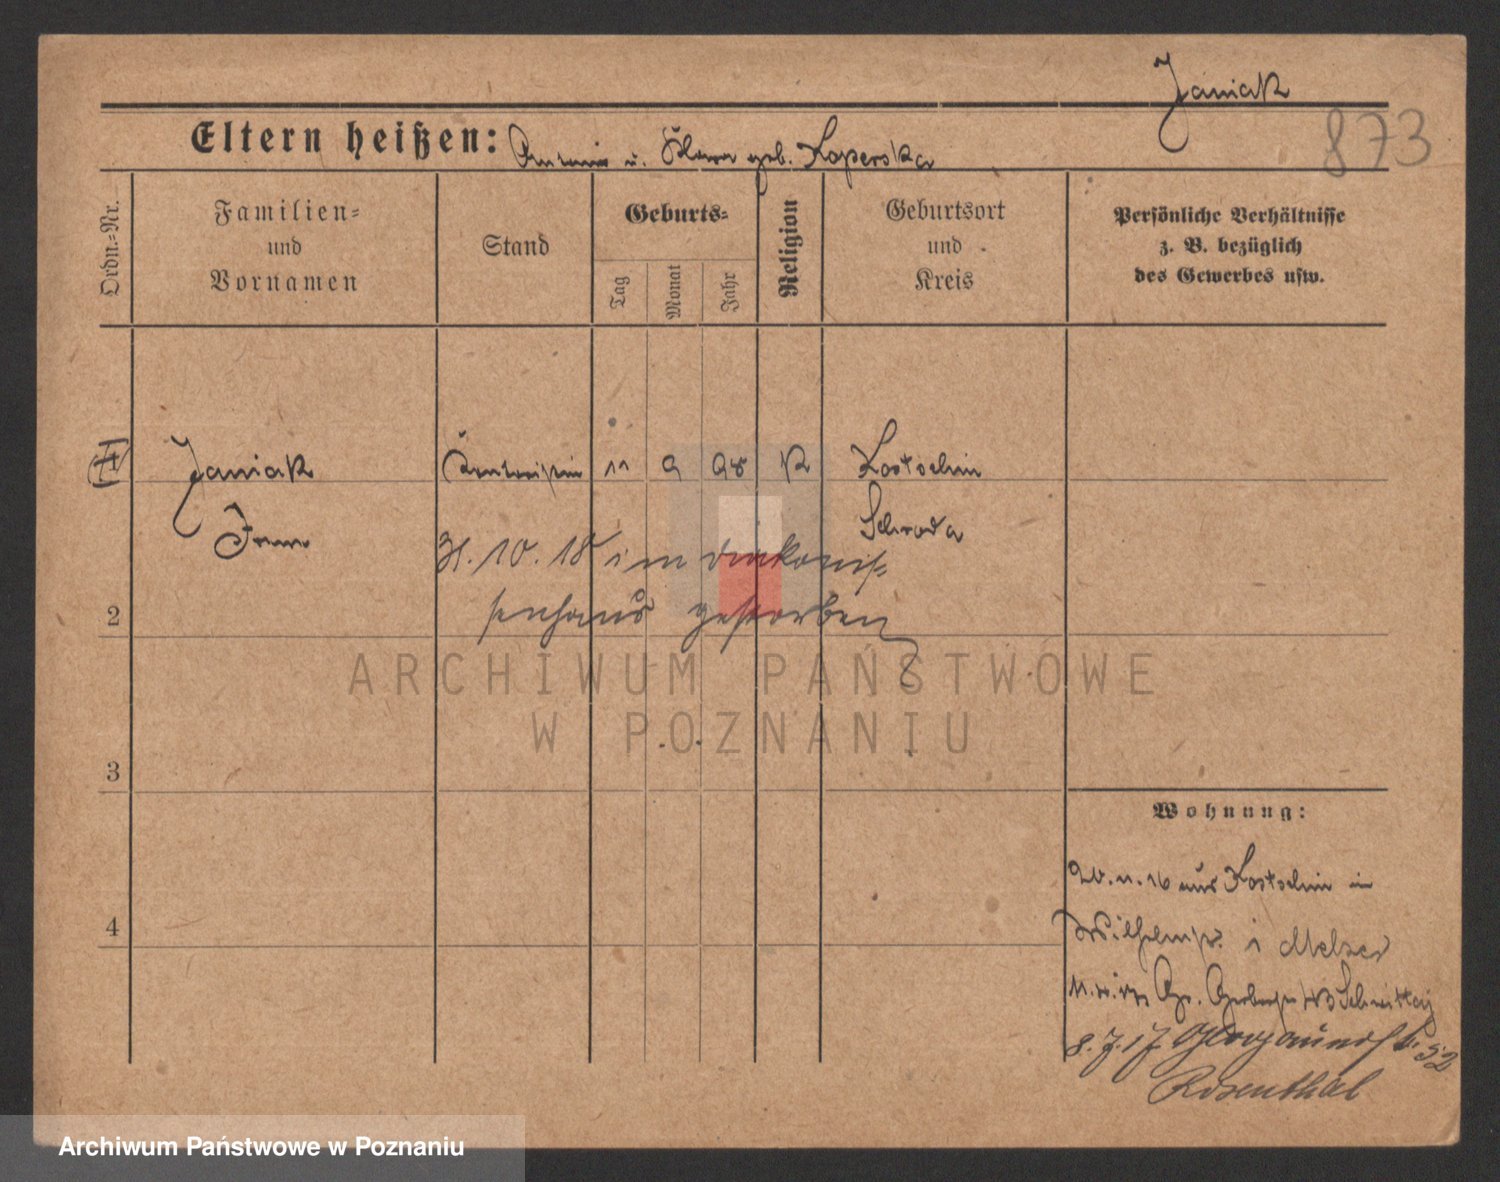 Janiak
873
Eltern heißen: Anton u. Klara geb. Koperska
Ordn.-Nr.
Familien-
und
Vornamen
Stand
Geburts-
Tag
Monat
Jahr
Religion
Geburtsort
und
Kreis
Persönliche Verhältnisse
z. B. bezüglich
des Gewerbes usw.
Janiak 11 9 98 K Kostschin
Schroda
31.10.18 im diakonis-
senhaus gestorben
2
3
4
ARCHIWUM PAŃSTWOWE
W POZNANIU
Wohnung:
aus Kostschin in
Wilhelmstr. 1 Melzer
Gr. Gerberstr. 43
8.7.17 52
Rosenthal
Archiwum Państwowe w Poznaniu